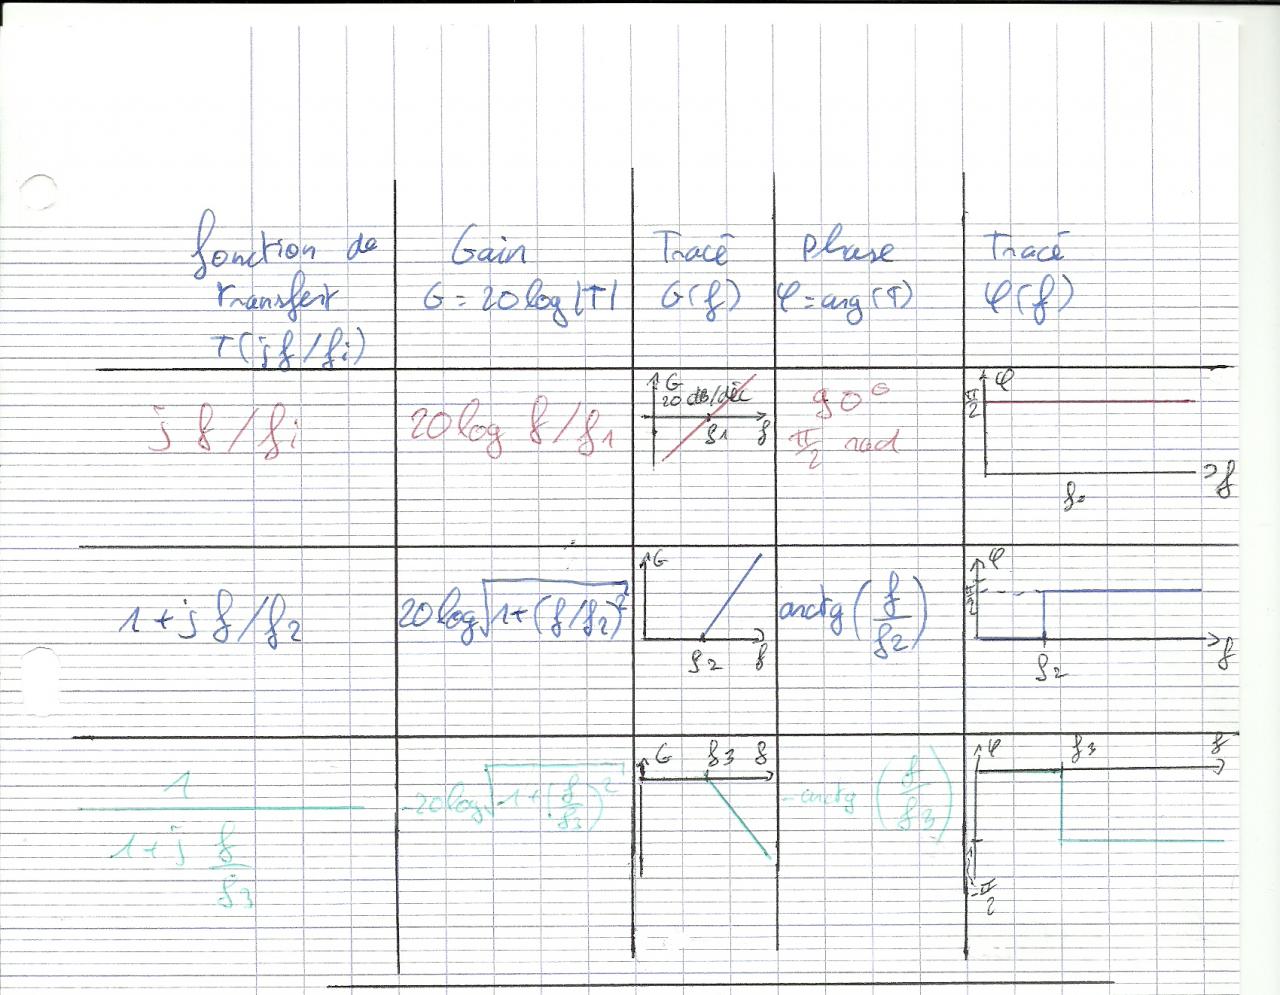 fonction de
transfert
T(jf/fi)
Gain
G = 20 log |T|
Tracé
G(f)
Phase
φ = arg(T)
Tracé
φ(f)
j f/fi
20 log f/f1
G
20 dB/déc
f1 f
90°
π/2 rad
φ
π/2
f
1+j f/f2
20 log √(1+(f/f2)²)
G
f2 f
arctg (f/f2)
φ
π/2
f2 f
1/(1+j f/f3)
-20 log √(1+(f/f3)²)
G f3 f
-arctg (f/f3)
φ f3 f
-π/2